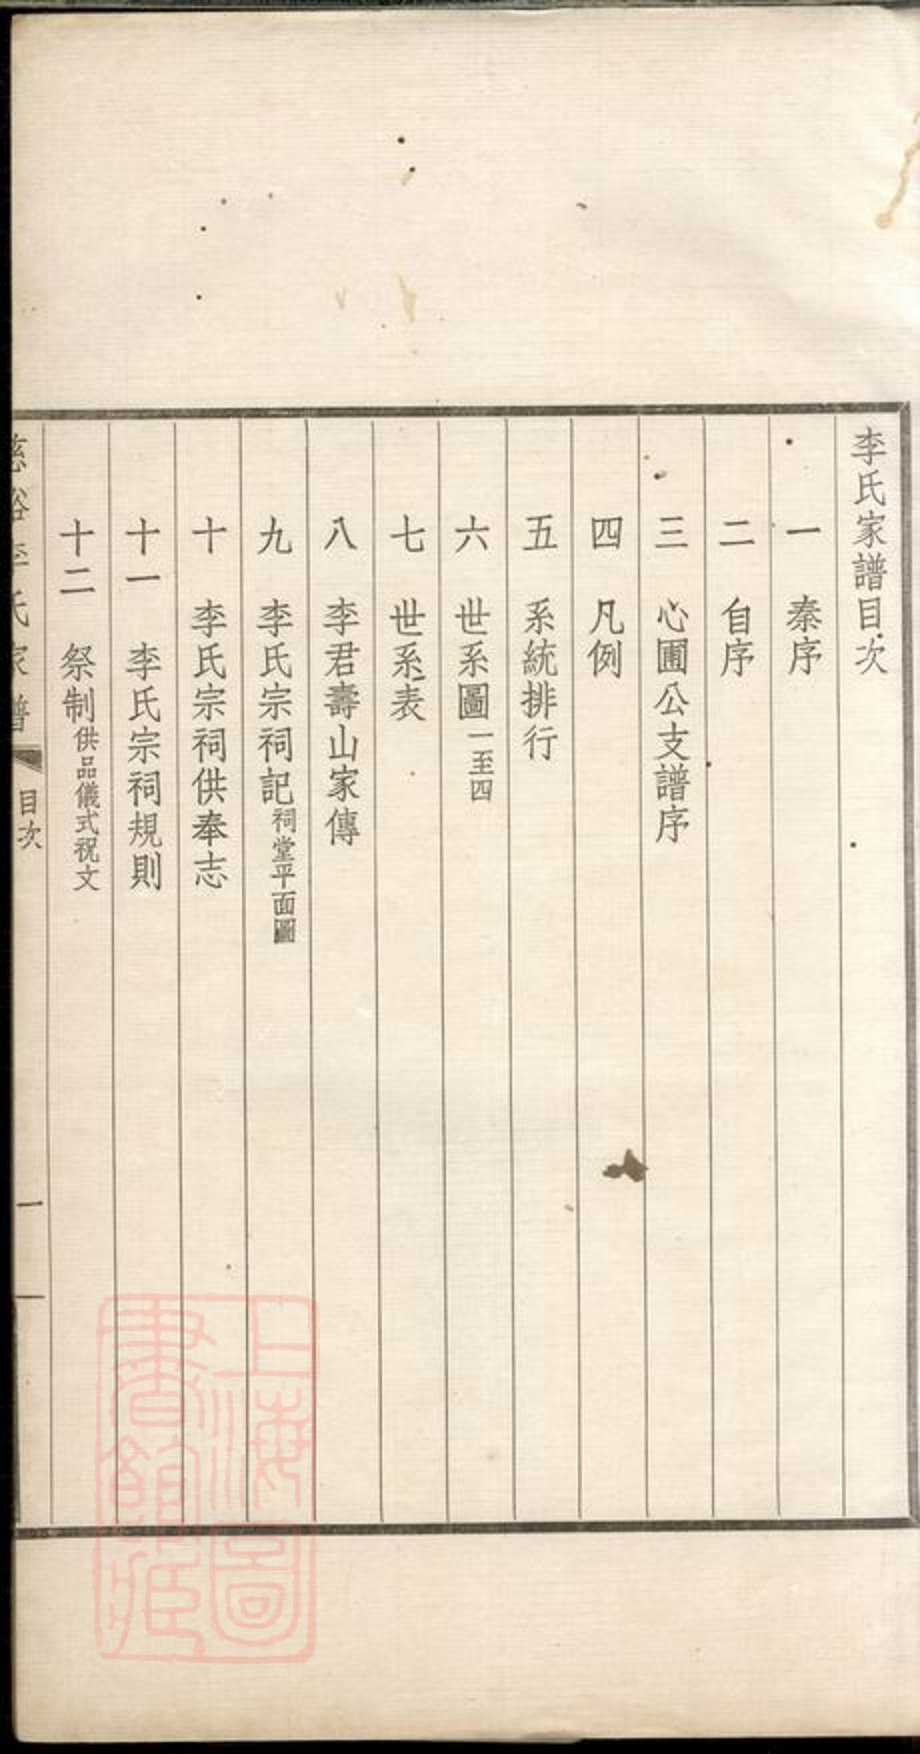 李氏家譜目次
一 秦序
二 自序
三 心圃公支譜序
四 凡例
五 系統排行
六 世系圖一至四
七 世系表
八 李君壽山家傳
九 李氏宗祠記祠堂平面圖
十 李氏宗祠供奉志
十一 李氏宗祠規則
十二 祭制供品儀式祝文
慈谿李氏家譜 目次 一
上海圖書館藏